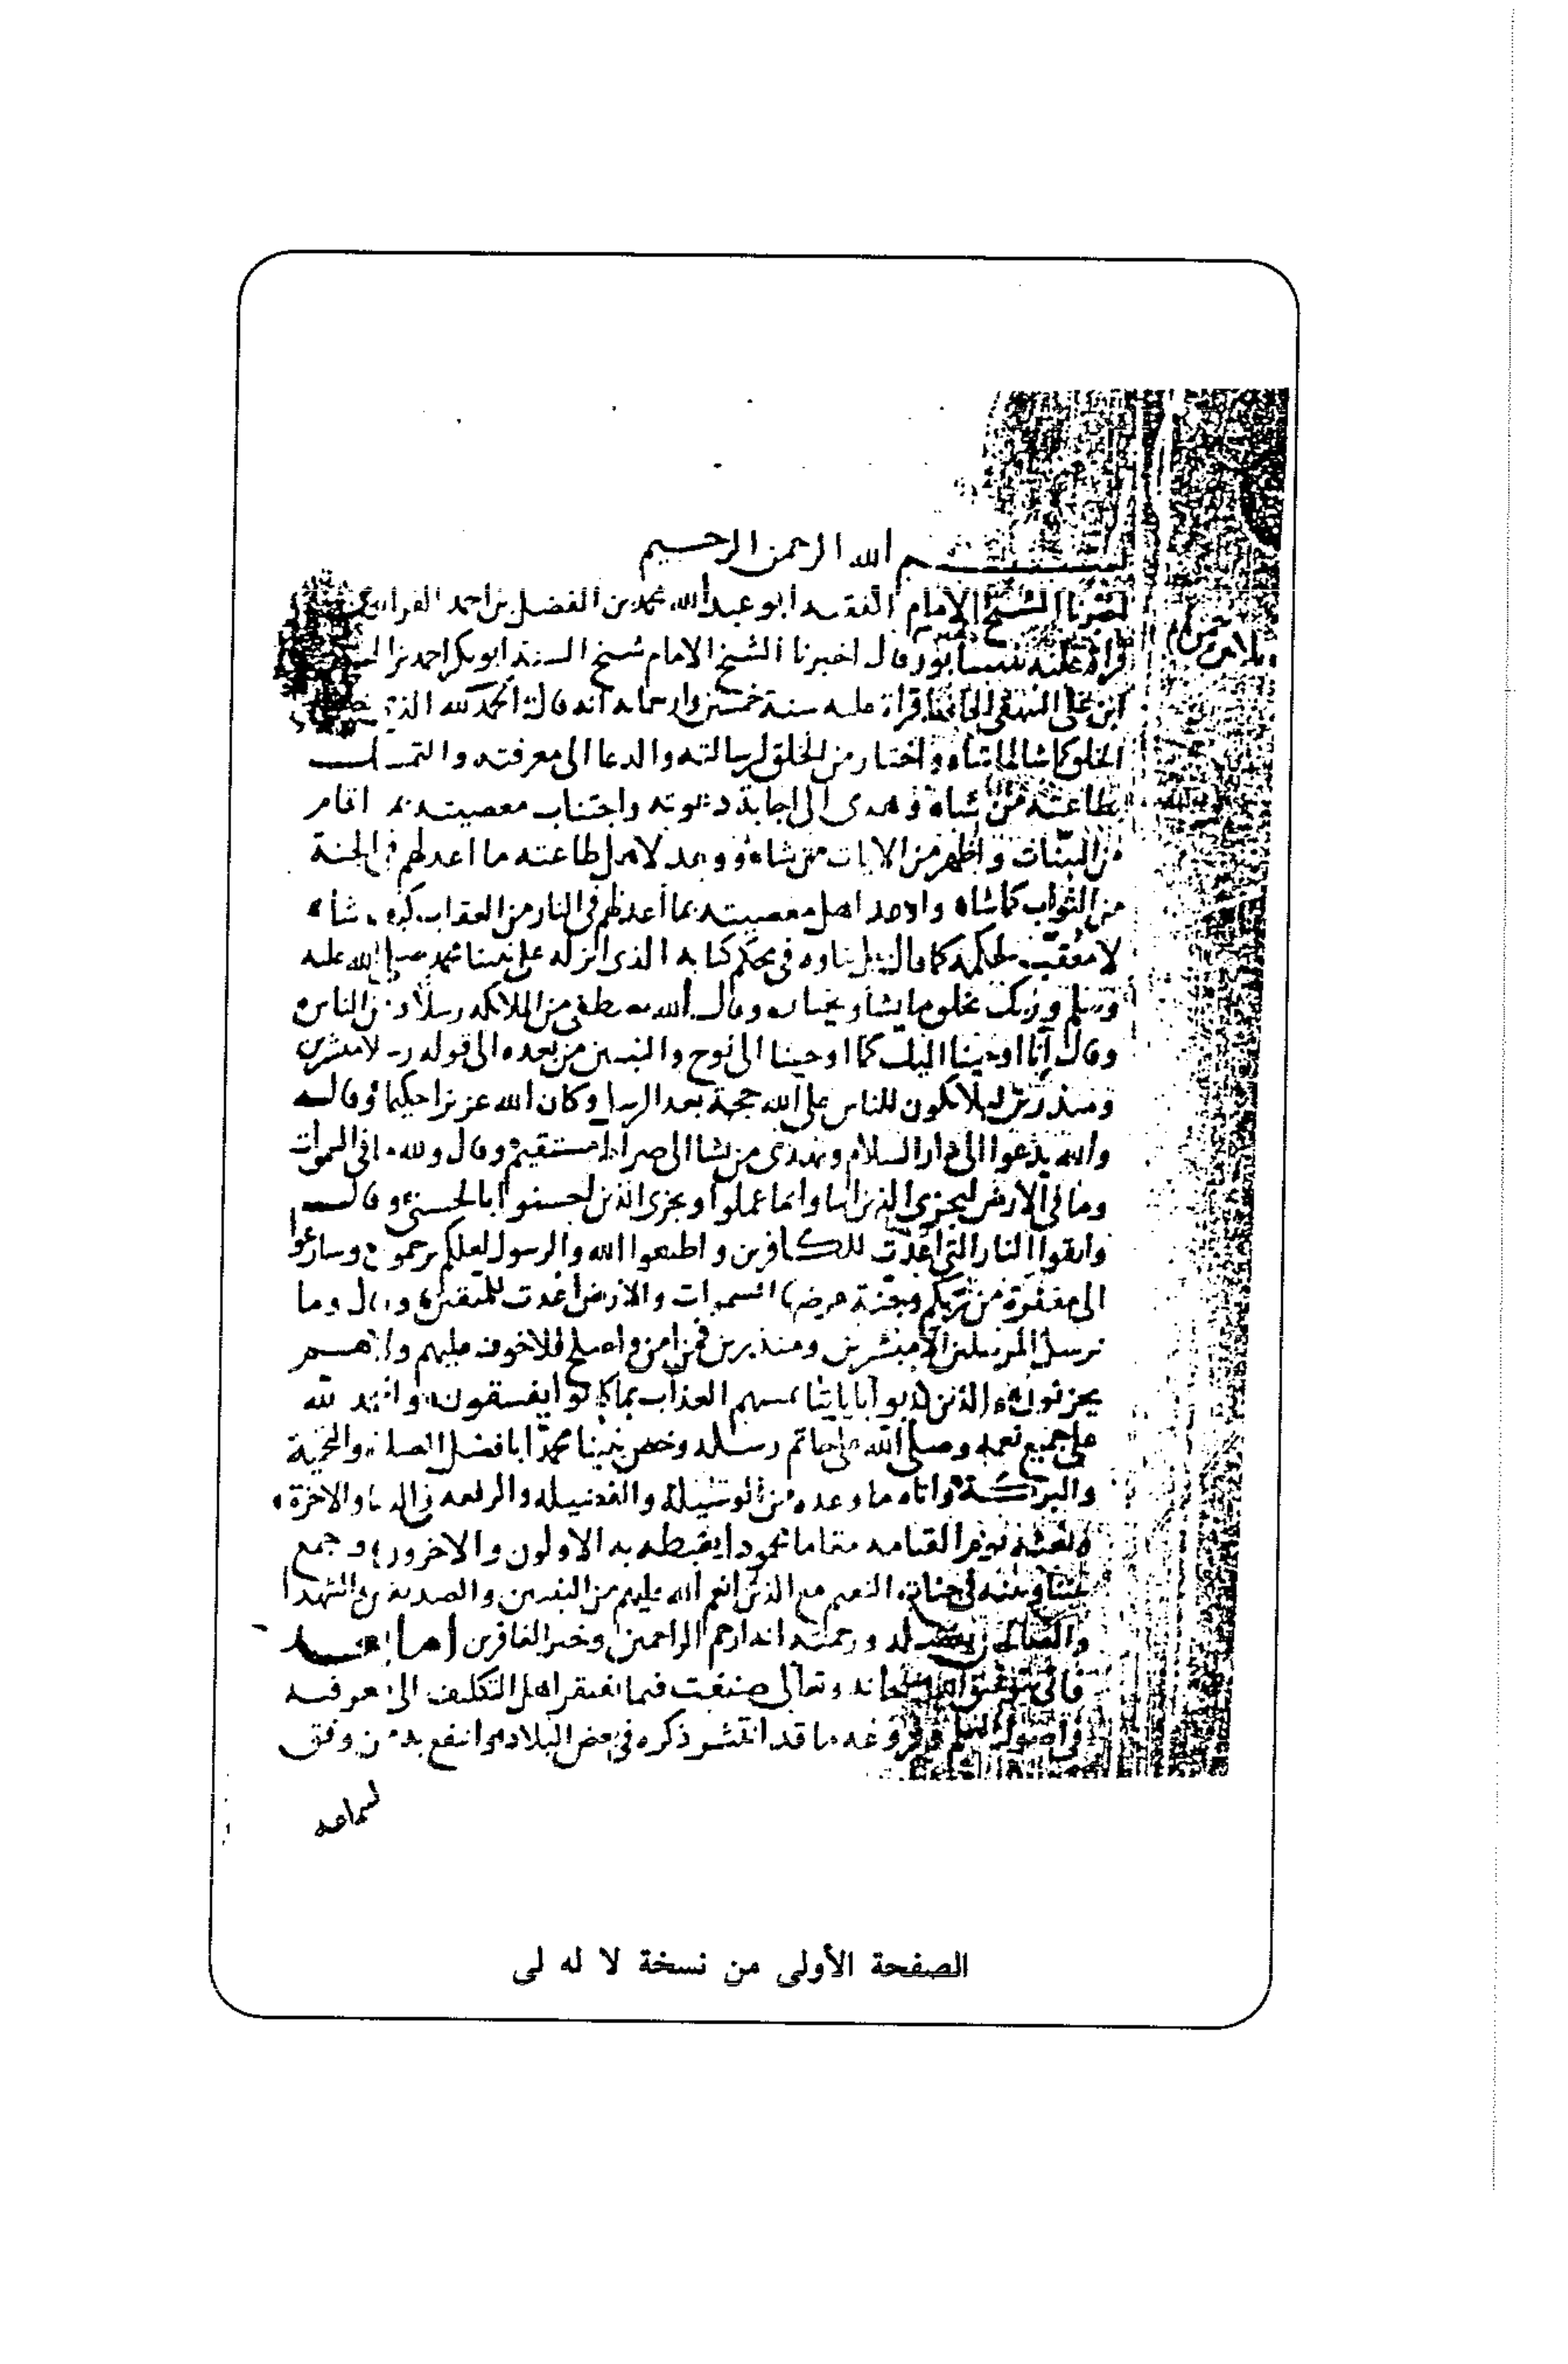 بسم الله الرحمن الرحيم
اخبرنا الشيخ الامام الفقيه ابو عبد الله محمد بن الفضل بن احمد الفراوي
قراة عليه بنيسابور قال اخبرنا الشيخ الامام شيخ السنة ابو بكر احمد بن الحسين
ابن على البيهقي الحافظ قراة عليه سنة خمسين واربعمايه انه قال الحمد لله الذي
الخلق كما شا لما شاء واختار من الخلق لرسالته والدعا الى معرفته والتمسك
بطاعته من شاء وهدى الى اجابة دعوته واجتناب معصيته بما اقام
من البينات واظهر من الايات من شاء ووعد لاهل طاعته ما اعد لهم في الجنة
من الثواب كما شاء واوعد اهل معصيته بما أعد لهم في النار من العقاب كيف شاء
لا معقب لحكمه كما قال في محكم كتابه الذى انزله على نبينا محمد صلى الله عليه
وسلم وربك يخلق ما يشا ويختار وقال الله يصطفي من الملايكه رسلا ومن الناس
وقال انا اوحينا اليك كما اوحينا الى نوح والنبيين من بعده الى قوله رسلا مبشرين
ومنذرين ليلا يكون للناس على الله حجة بعد الرسل وكان الله عزيزا حكيما وقال
والله يدعوا الى دار السلام ويهدى من يشا الى صراط مستقيم وقال ولله ما في السموات
وما في الارض ليجزى الذين اساوا بما عملوا ويجزى الذين احسنوا بالحسنى وقال
واتقوا النار التي اعدت للكافرين واطيعوا الله والرسول لعلكم ترحمون وسارعوا
الى مغفرة من ربكم وجنة عرضها السموات والارض اعدت للمتقين وقال وما
نرسل المرسلين الا مبشرين ومنذرين فمن امن واصلح فلا خوف عليهم ولا هم
يحزنون والذين كذبوا باياتنا يمسهم العذاب بما كانوا يفسقون والحمد لله
على جميع نعمه وصلى الله على خاتم رسله وخص نبينا محمدا بافضل الصلاة والتحية
والبركة واتاه ما وعده من الوسيلة والفضيله والرفعه في الدنيا والاخرة
وبعثه يوم القيامه مقاما محمودا يغبطه به الاولون والاخرون وجمع
بيننا وبينه في جنات النعيم مع الذين انعم الله عليهم من النبيين والصديقين والشهدا
والصالحين بفضله ورحمته انه ارحم الراحمين وخير الغافرين اما بعد
فاني بتوفيق الله سبحانه وتعالى صنفت فيما يفتقر اهل التكليف الى معرفته
في اصول العلم وفروعه ما قد انتشر ذكره في بعض البلاد وانتفع به من وفق
لسماعه
الصفحة الأولى من نسخة لا له لى